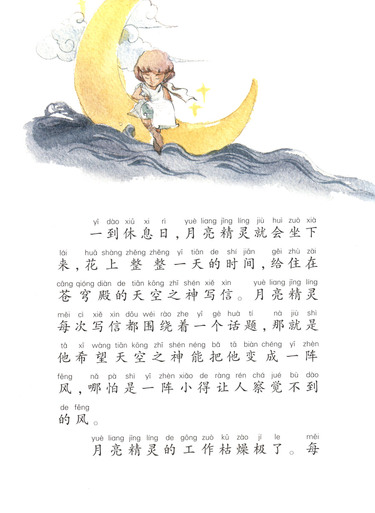 yī dào xiū xi rì yuè liang jīng líng jiù huì zuò xià
一到休息日，月亮精灵就会坐下
lái huā shàng zhěng zhěng yì tiān de shí jiān gěi zhù zài
来，花上整整一天的时间，给住在
cāng qióng diàn de tiān kōng zhī shén xiě xìn yuè liang jīng líng
苍穹殿的天空之神写信。月亮精灵
měi cì xiě xìn dōu wéi rào zhe yí gè huà tí nà jiù shì
每次写信都围绕着一个话题，那就是
tā xī wàng tiān kōng zhī shén néng bǎ tā biàn chéng yí zhèn
他希望天空之神能把他变成一阵
fēng nǎ pà shì yí zhèn xiǎo de ràng rén chá jué bú dào
风，哪怕是一阵小得让人察觉不到
de fēng
的风。
yuè liang jīng líng de gōng zuò kū zào jí le měi
月亮精灵的工作枯燥极了。每